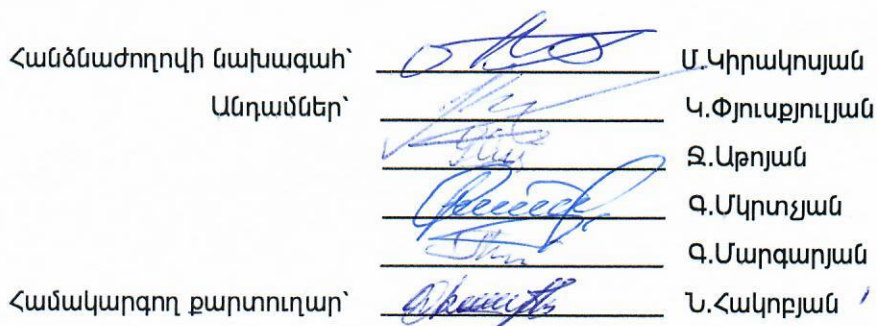 Հանձնաժողովի նախագահ՝ Մ.Կիրակոսյան
Անդամներ՝ Կ.Փյուսքյուլյան
Ջ.Աթոյան
Գ.Մկրտչյան
Գ.Մարգարյան
Համակարգող քարտուղար՝ Ն.Հակոբյան